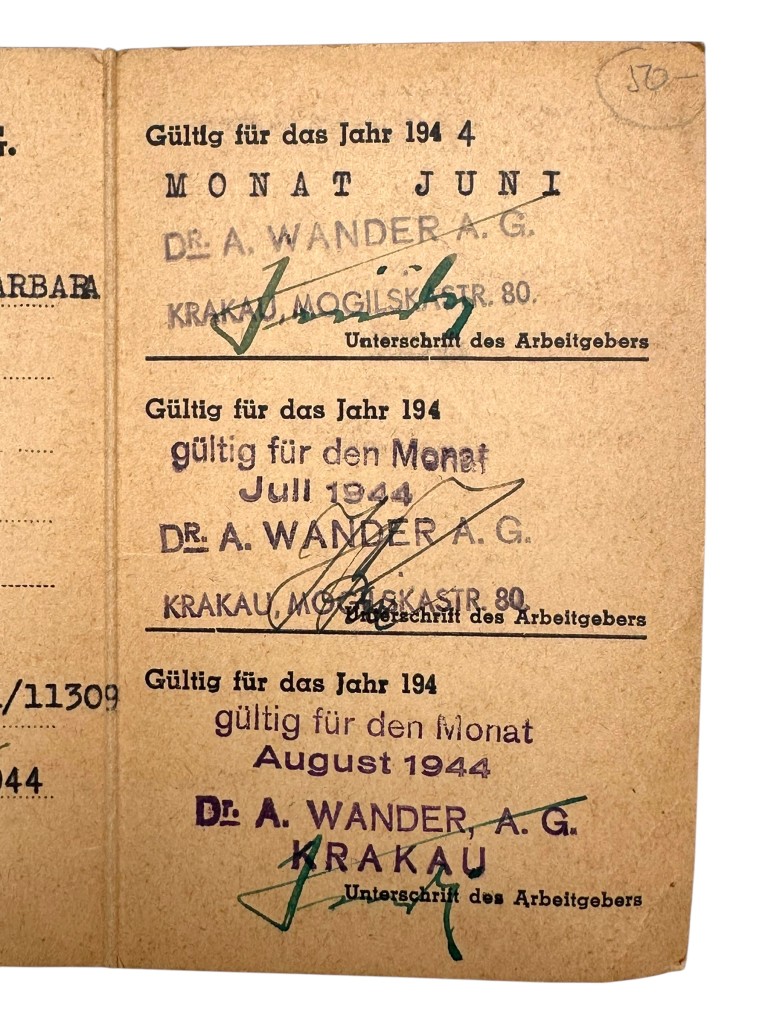 50-
G.
ARBARA
/11309
944
Gültig für das Jahr 194 4
MONAT JUNI
DR. A. WANDER A. G.
KRAKAU, MOGILSKASTR. 80.
Unterschrift des Arbeitgebers
Gültig für das Jahr 194
gültig für den Monat
Juli 1944
DR. A. WANDER A. G.
KRAKAU, MOGILSKASTR. 80.
Unterschrift des Arbeitgebers
Gültig für das Jahr 194
gültig für den Monat
August 1944
Dr. A. WANDER, A. G.
KRAKAU
Unterschrift des Arbeitgebers